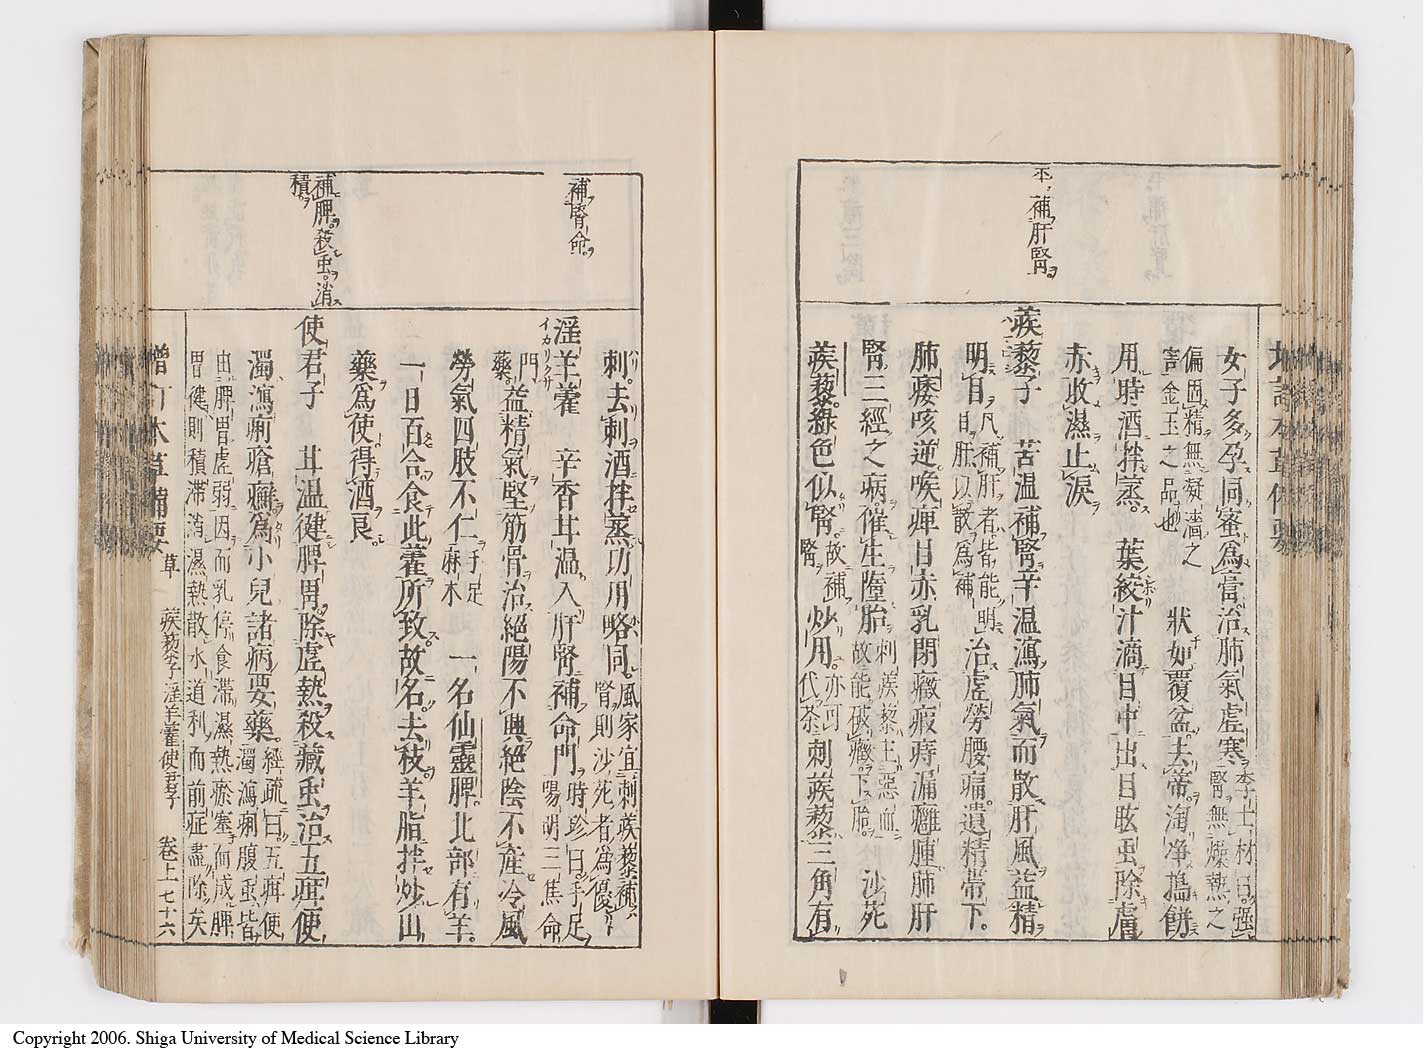 平補肝腎
女子多孕同蜜為膏治肺氣虛寒李士材曰強腎無燥熱之
偏固精無凝濇之害金玉之品也狀如覆盆去蒂淘净搗餅
用時酒拌蒸葉絞汁滴目中出目眩虫除膚
赤收濕止淚
蒺藜子苦温補腎辛温瀉肺氣而散肝風益精
明目凡補肝者皆能明目肝以散為補治虛勞腰痛遺精帶下
肺痿咳逆喉痺目赤乳閉癥瘕痔漏癰腫肺肝
腎三經之病催生墮胎刺蒺藜主惡血故能破癥下胎沙苑
蒺藜綠色似腎故補腎炒用亦可代茶刺蒺藜三角有
補腎命
補脾殺虫消積
刺去刺酒拌蒸功用略同風家宜刺蒺藜補腎則沙苑者為優
淫羊藿辛香甘温入肝腎補命門時珍曰手足陽明三焦命
イカリクサ
門藥益精氣堅筋骨治絕陽不興絕陰不產冷風
勞氣四肢不仁手足麻木一名仙靈脾北部有羊
一日百合食此藿所致故名去枝羊脂拌炒山
藥為使得酒良
使君子甘温健脾胃除虛熱殺藏虫治五疳便
濁瀉痢瘡癬為小兒諸病要藥經疏曰五疳便濁瀉痢腹虫皆
由脾胃虛弱因而乳停食滯濕熱瘀塞而成脾
胃健則積滯消濕熱散水道利而前症盡除矣
增訂本草備要 草 蒺藜子淫羊藿使君子 卷上七十六
Copyright 2006. Shiga University of Medical Science Library